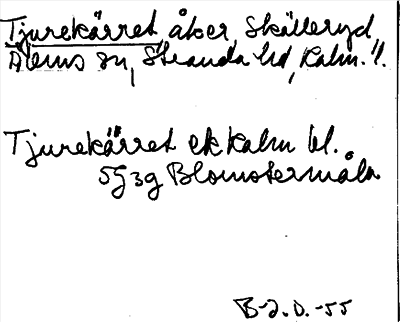 Tjurekärret, åker, Skälleryd,
Ålems sn, Stranda hd, Kalm. l.
Tjurekärret ek kalm bl.
5G3g Blomstermåla
B-J.O.-55